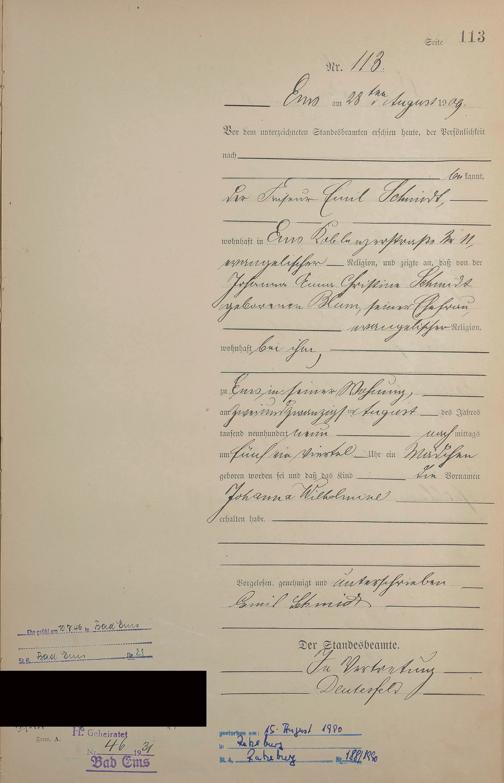 Seite 113
Nr. 113.
Ems am 28ten August 1909.
Vor dem unterzeichneten Standesbeamten erschien heute, der Persönlichkeit
nach
bekannt,
der Friseur Emil Schmidt,
wohnhaft in Ems Koblenzerstraße Nr 11,
evangelischer Religion, und zeigte an, daß von der
Johanna Anna Christine Schmidt
geborenen Blum, seiner Ehefrau
evangelischer Religion,
wohnhaft bei ihm,
zu Ems in seiner Wohnung,
am zweiundzwanzigsten August des Jahres
tausend neunhundert neun nachmittags
um fünf ein viertel Uhr ein Mädchen
geboren worden sei und daß das Kind die Vornamen
Johanna Wilhelmine
erhalten habe.
Vorgelesen, genehmigt und unterschrieben
Emil Schmidt
Der Standesbeamte.
In Vertretung
Ehe gelöst am in Bad Ems
St. A. Bad Ems Nr. 23
Form. A.
Geheiratet
Nr. 46 1931
Bad Ems
gestorben am: 15. August 1980
in Ratzeburg
St. A. Ratzeburg Nr. 188/1980